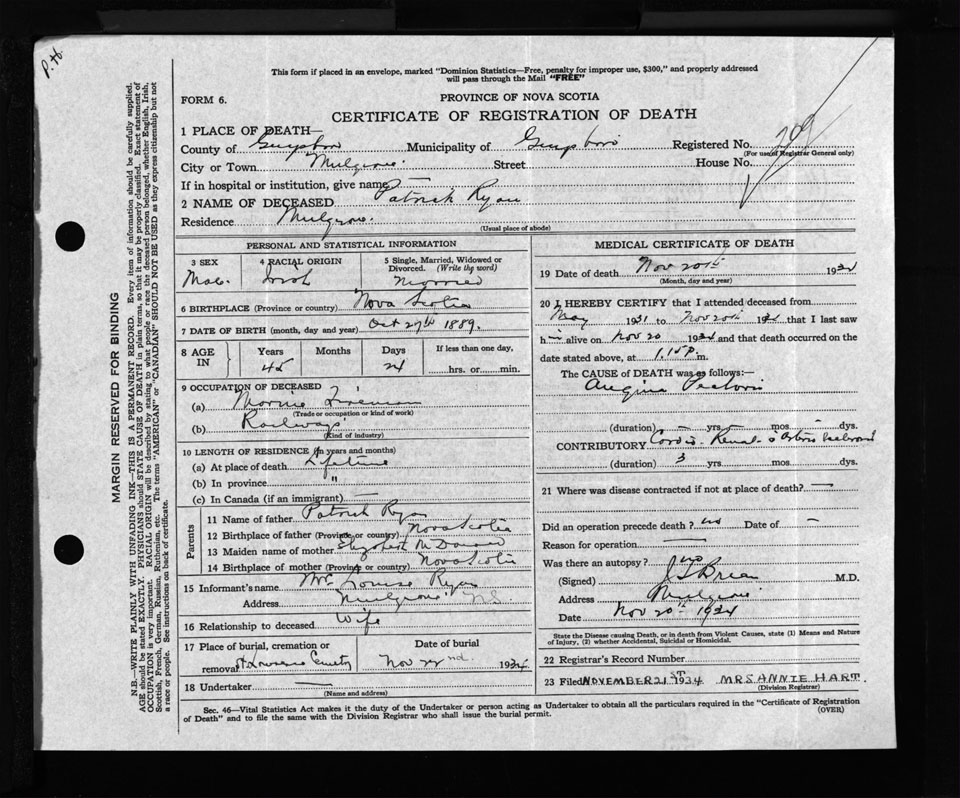 P.H.
This form if placed in an envelope, marked "Dominion Statistics—Free, penalty for improper use, $300," and properly addressed
will pass through the Mail "FREE"
FORM 6.
PROVINCE OF NOVA SCOTIA
CERTIFICATE OF REGISTRATION OF DEATH
209
1 PLACE OF DEATH—
County of Guysboro Municipality of Guysboro Registered No.
(For use of Registrar General only)
City or Town Mulgrave. Street House No.
If in hospital or institution, give name —
2 NAME OF DECEASED Patrick Ryan
Residence Mulgrave.
(Usual place of abode)
PERSONAL AND STATISTICAL INFORMATION
3 SEX 4 RACIAL ORIGIN 5 Single, Married, Widowed or Divorced. (Write the word)
Male. Irish Married
6 BIRTHPLACE (Province or country) Nova Scotia
7 DATE OF BIRTH (month, day and year) Oct 27th 1889.
8 AGE IN Years Months Days If less than one day,
45 24 hrs. or min.
9 OCCUPATION OF DECEASED
(a) Fireman
(Trade or occupation or kind of work)
(b) Railway
(Kind of industry)
10 LENGTH OF RESIDENCE (in years and months)
(a) At place of death Lifetime
(b) In province "
(c) In Canada (if an immigrant) —
Parents
11 Name of father Patrick Ryan
12 Birthplace of father (Province or country) Nova Scotia
13 Maiden name of mother Elizabeth
14 Birthplace of mother (Province or country) Nova Scotia
15 Informant's name Mrs Louise Ryan
Address Mulgrave NS
16 Relationship to deceased Wife
17 Place of burial, cremation or removal Date of burial
St Lawrence Nov 22nd. 1934
18 Undertaker —
(Name and address)
MEDICAL CERTIFICATE OF DEATH
19 Date of death Nov 20th 1934
(Month, day and year)
20 I HEREBY CERTIFY that I attended deceased from
May 1931 to Nov 20th 1934 that I last saw
him alive on Nov 20 1934 and that death occurred on the
date stated above, at 1.15 P. m.
The CAUSE OF DEATH was as follows:—
Angina Pectoris
(duration) — yrs. — mos. — dys.
CONTRIBUTORY Cardio-Renal
(duration) 3 yrs. mos. dys.
21 Where was disease contracted if not at place of death? —
Did an operation precede death? no Date of —
Reason for operation —
Was there an autopsy? no
(Signed) M.D.
Address Mulgrave.
Date Nov 20th 1934
State the Disease causing Death, or in death from Violent Causes, state (1) Means and Nature
of Injury, (2) whether Accidental, Suicidal or Homicidal.
22 Registrar's Record Number
23 Filed NOVEMBER 21ST 1934 MRS ANNIE HART.
(Division Registrar)
Sec. 46—Vital Statistics Act makes it the duty of the Undertaker or person acting as Undertaker to obtain all the particulars required in the "Certificate of Registration
of Death" and to file the same with the Division Registrar who shall issue the burial permit.
(OVER)
MARGIN RESERVED FOR BINDING
N.B.—WRITE PLAINLY WITH UNFADING INK—THIS IS A PERMANENT RECORD. Every item of information should be carefully supplied.
AGE should be stated EXACTLY. PHYSICIANS should STATE CAUSE OF DEATH in plain terms, so that it may be properly classified. Exact statement of
OCCUPATION is very important. RACIAL ORIGIN will be described by stating to what people or race the deceased person belonged, whether English, Irish,
Scottish, French, German, Russian, Ruthenian, etc. The terms "AMERICAN" or "CANADIAN" SHOULD NOT BE USED as they express citizenship but not
a race or people. See instructions on back of certificate.